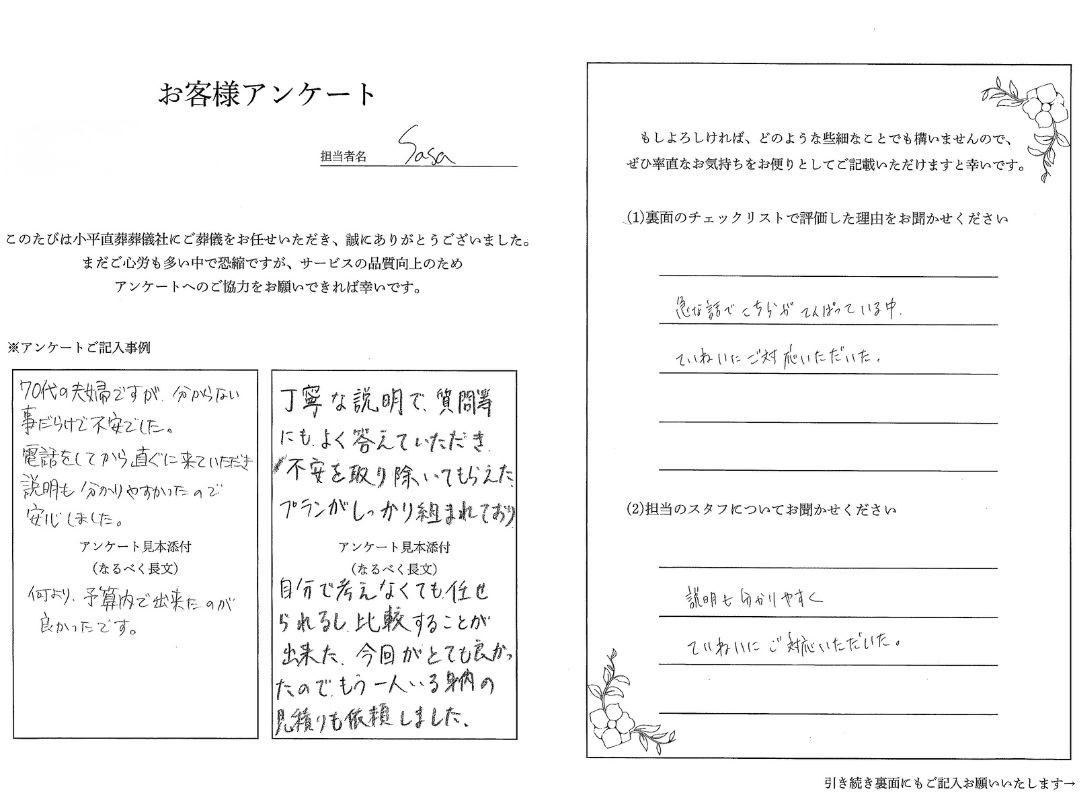 お客様アンケート
担当者名 Sasa
このたびは小平直葬葬儀社にご葬儀をお任せいただき、誠にありがとうございました。
まだご心労も多い中で恐縮ですが、サービスの品質向上のため
アンケートへのご協力をお願いできれば幸いです。
※アンケートご記入事例
70代の夫婦ですが、分からない
事だらけで不安でした。
電話をしてから直ぐに来ていただき
説明も分かりやすかったので
安心しました。
アンケート見本添付
(なるべく長文)
何より、予算内で出来たのが
良かったです。
丁寧な説明で、質問等
にも、よく答えていただき、
不安を取り除いてもらえた、
プランがしっかり組まれており
アンケート見本添付
(なるべく長文)
自分で考えなくても、任せ
られるし、比較することが
出来た、今回がとても良かっ
たので、もう一人いる身内の
見積りも依頼しました、
もしよろしければ、どのような些細なことでも構いませんので、
ぜひ率直なお気持ちをお便りとしてご記載いただけますと幸いです。
(1)裏面のチェックリストで評価した理由をお聞かせください
急な話でこちらがてんぱっている中、
ていねいにご対応いただいた。
(2)担当のスタッフについてお聞かせください
説明も分かりやすく
ていねいにご対応いただいた。
引き続き裏面にもご記入お願いいたします→